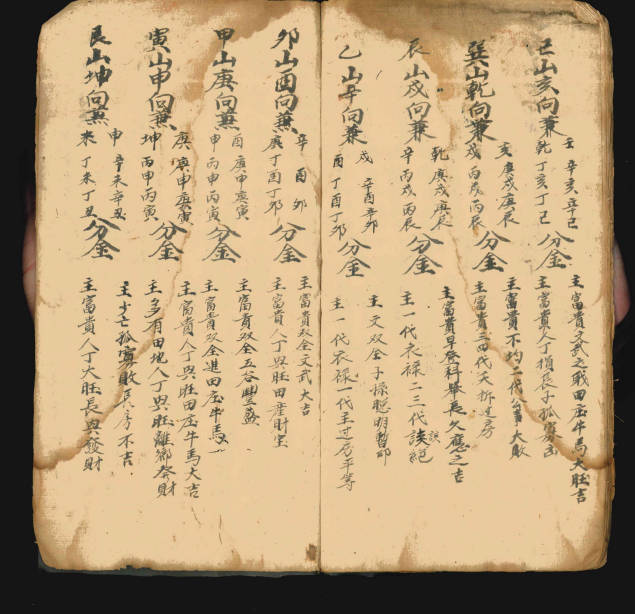 巳山亥向兼
壬 辛亥辛巳
乾 丁亥丁巳
分金
主富貴文武之職田庄牛馬大旺吉
主富貴人丁損長子孤寡凶
巽山乾向兼
亥 庚戌庚辰
戌 丙戌丙辰
分金
主富貴不均二代大敗
主富貴三四代夭折過房
辰山戌向兼
乾 庚戌庚辰
辛 丙戌丙辰
分金
主富貴早登科舉長久應之吉
主一代衣祿二三代絕
乙山辛向兼
戌 辛酉辛卯
酉 丁酉丁卯
分金
主文双全子孫聰明
主一代衣祿一代主过房平等
卯山酉向兼
辛 酉卯
庚 丁酉丁卯
分金
主富貴双全文武大吉
主富貴人丁興旺田產財宝
甲山庚向兼
酉 庚申庚寅
申 丙申丙寅
分金
主富貴双全五谷豐盛
主富貴双全進田庄牛馬
寅山申向兼
庚 庚申庚寅
坤 丙申丙寅
分金
主富貴人丁興旺田庄牛馬大吉
主多有田地人丁興旺離鄉發財
艮山坤向兼
申 辛未辛丑
未 丁未丁丑
分金
主少亡孤寡敗長房不吉
主富貴人丁大旺長興發財